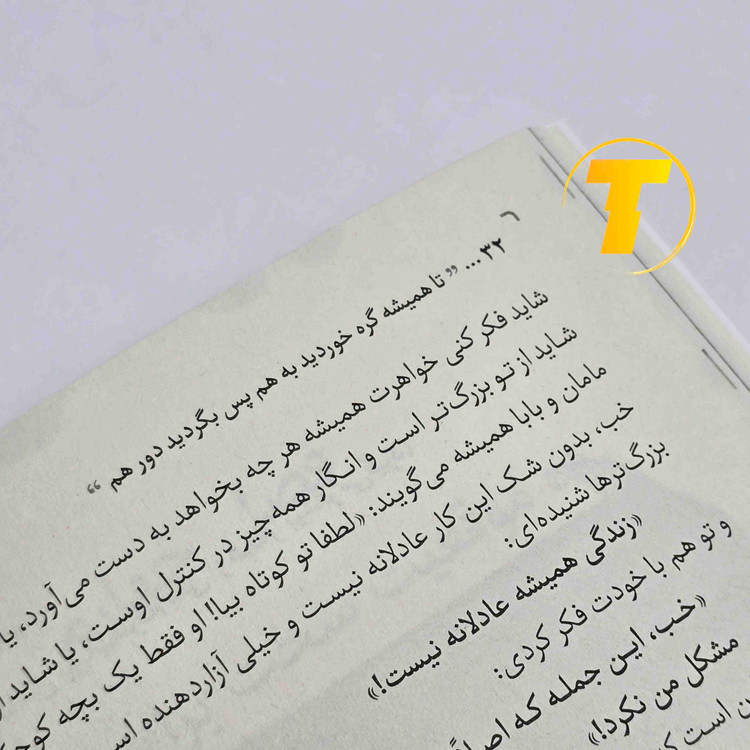 T
۳۲ ... „ تا همیشه گره خوردید به هم پس بگردید دور هم “
شاید فکر کنی خواهرت همیشه هر چه بخواهد به دست می‌آورد، یا
شاید از تو بزرگ‌تر است و انگار همه چیز در کنترل اوست، یا شاید از
مامان و بابا همیشه می‌گویند: «لطفا تو کوتاه بیا! او فقط یک بچه
خب، بدون شک این کار عادلانه نیست و خیلی آزاردهنده
بزرگ‌ترها شنیده‌ای:
«زندگی همیشه عادلانه نیست!»
و تو هم با خودت فکر کردی:
«خب، این جمله که
مشکل من نکرد!»
است